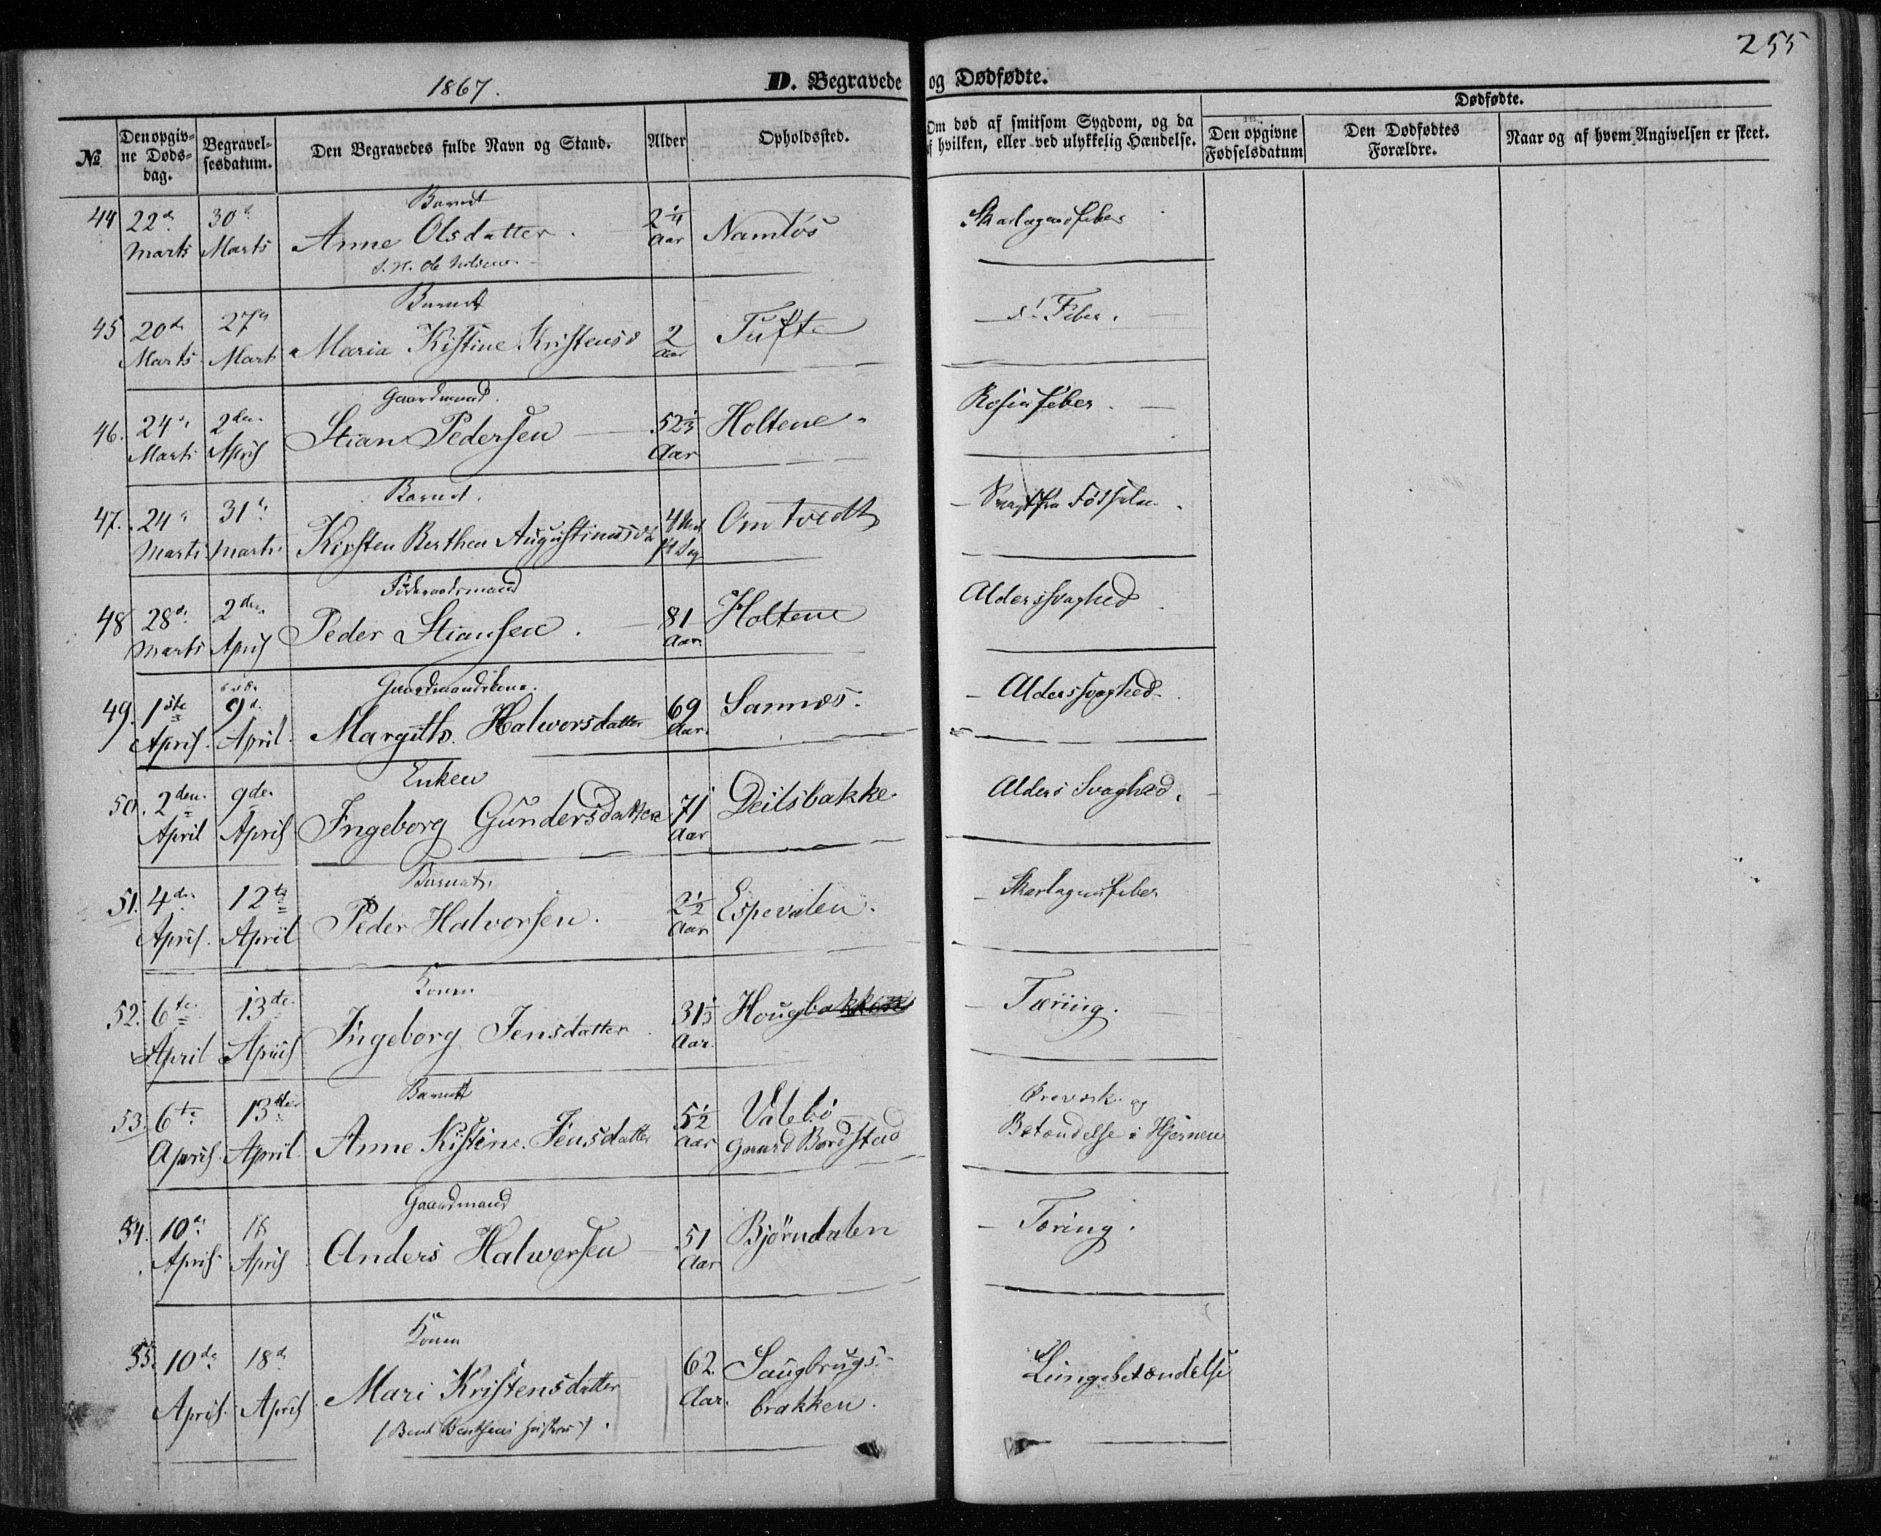 255
1867.
D. Begravede og Dødfødte.
№
Den opgivne Dødsdag.
Begravelsesdatum.
Den Begravedes fulde Navn og Stand.
Alder
Opholdssted.
Om død af smitsom Sygdom, og da af hvilken, eller ved ulykkelig Hændelse.
Dødfødte.
Den opgivne Fødselsdatum
Den Dødfødtes Forældre.
Naar og af hvem Angivelsen er skeet.
Barnet
44 22d 30d Anne Olsdatter. 2¼ Namløs Skarlagensfeber
Marts Marts Aar
Ole
Barnet
45 20de 27d Maria Kistine Kristensd 2 Tufte d. Feber.
Marts Mart Aar
Gaardmand.
46. 24d 2den Stian Pedersen 52⅓ Holtene Rosenfeber
Marts April Aar
Barnet.
47. 24d 31d Kirsten Berthea Augustinusd Omtvedt Svag fra Fødselen.
Marts Marts 14 Dag
Føderaadsmand
48 28d 2den Peder Stiansen. 81 Holtene Alderssvaghed
Marts April Aar.
Gaardmandskone.
49. 1ste 9d Margith Halvorsdatter 69 Sannæs. Alderssvaghed.
April. April. Aar.
Enken
50. 2den 9de Ingeborg Gundersdatter 71 Deilsbakke Alders Svaghed.
April April Aar
Barnet.
51. 4de 12te Peder Halvorsen. 2½ Espevalen. Skarlagensfeber
April. April Aar
Konen
52. 6te 13de Ingeborg Jensdatter. 31⅓ Hougbakken Tæring.
April April Aar.
Barnet
53. 6te 13de Anne Kistine Jensdatter 5½ Valebø Øreværk og
April. April. Aar Gaard Bordstad Betændelse i Hjernen
Gaardmand
54. 10d 18 Anders Halvorsen 51 Bjørndalen Tæring.
April April Aar
Konen
55. 10de 18d Mari Kristensdatter 62 Saugbrugs- Lungebetændelse
April. April Aar. brakken.
(Bent Bentsens Hustru).